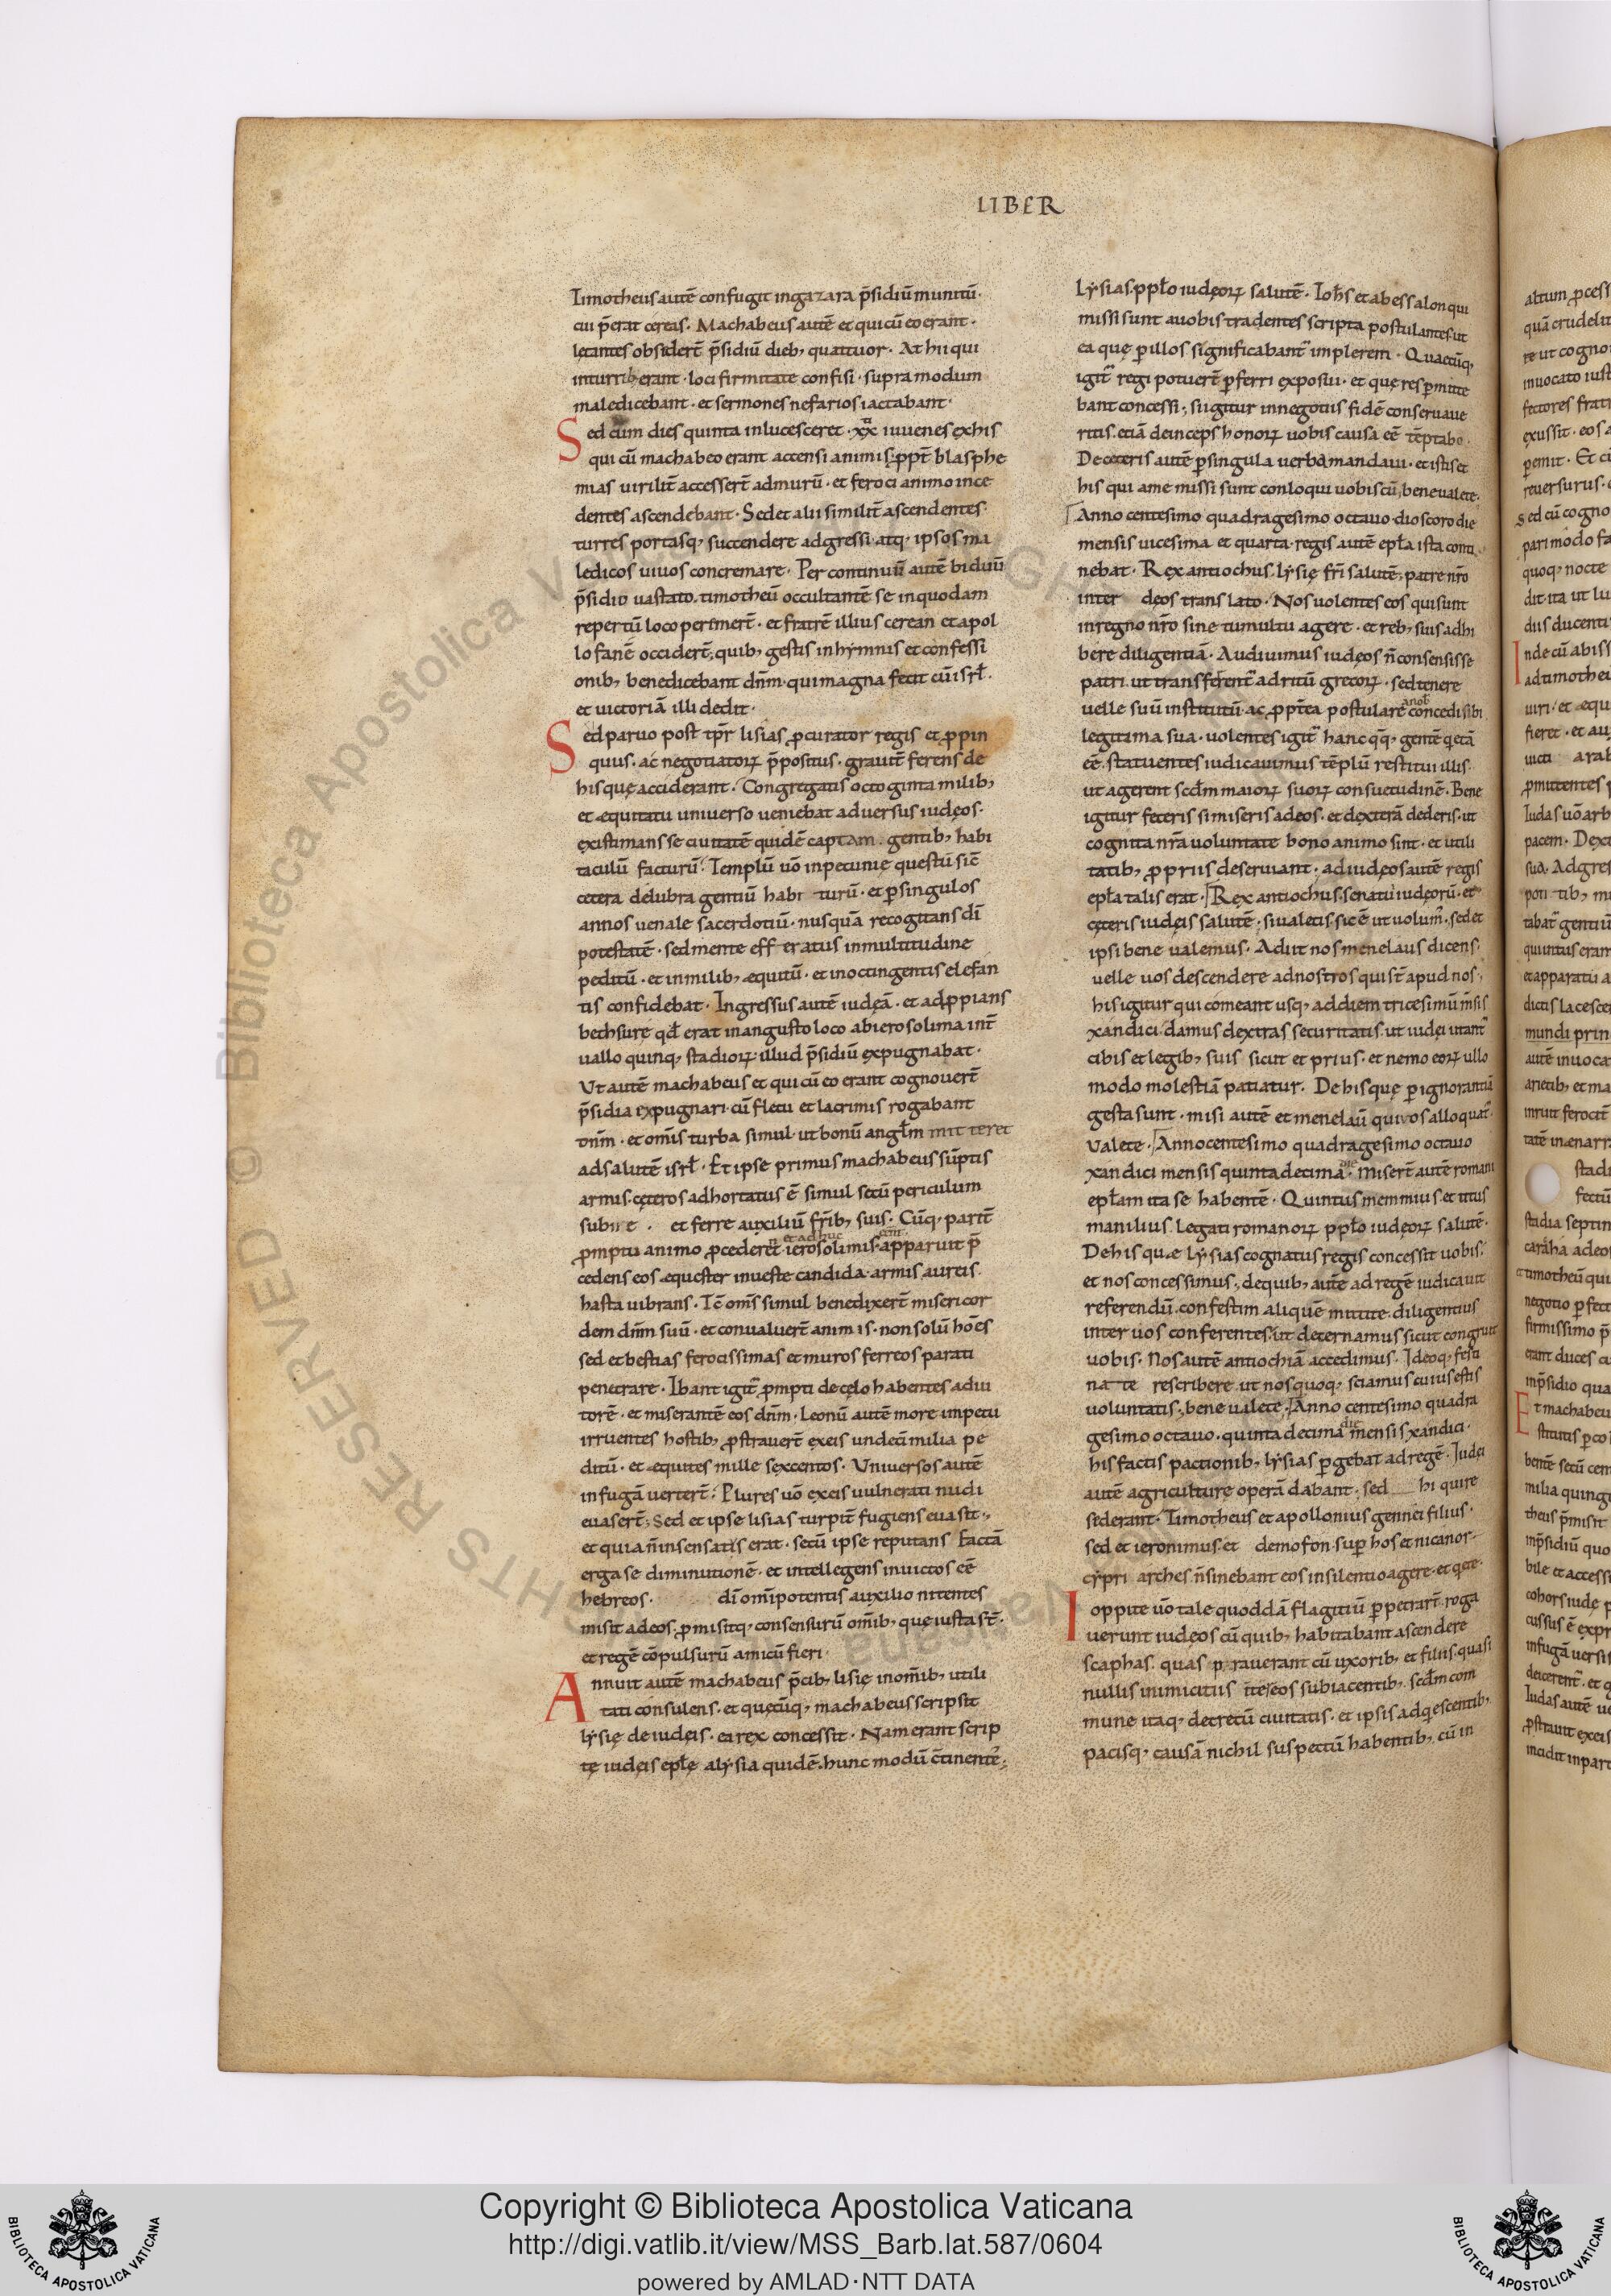 LIBER
Timotheus autē confugit in gazara p̄sidiū munitū·
cui p̄erat cereas. Machabeus autē et qui cū eo erant·
lętantes obsidert̄ p̄sidiū dieb; quattuor· At hii qui
inturri erant· loci firmitate confisi· supra modum
maledicebant· et sermones nefarios iactabant·
Sed cum dies quinta inlucesceret· xx iuvenes exhis
qui cū machabeo erant accensi animis ꝓpt̄ blasphe
mias uirilit̄ accessert̄ admurū· et feroci animo ince
dentes ascendebant· Sed et alii similit̄ ascendentes·
turres portasq; succendere adgressi· atq; ipsos ma
ledicos uiuos concremare· Per continuū autē biduū
p̄sidio uastato· timotheū occultantē se in quodam
repertū loco peremert̄· et fratrē illius cerean et apol
lofanē occidert̄; quib; gestis in hymnis et confessi
onib; benedicebant dn̄m· qui magna fecit cū isrł·
et uictoriā illi dedit·
Sed paruo post tp̄r lisias ꝓcurator regis et ꝓpin
quus· ac negotiatoꝝ p̄positus· grauit̄ ferens de
his quę acciderant· Congregatis octoginta milib;
et equitatu uniuerso ueniebat aduersus iudęos·
existimans se ciuitatē quidē captam gentib; habi
taculū facturū· Templū uō in pecunię questū sic̄
cetera delubra gentiū habi turū· et ꝑ singulos
annos uenale sacerdotiū· nusquā recogitans dī
potestatē· sed mente eff eratus in multitudine
peditū· et in milib; equitū· et in octingentis elefan
tis confidebat· Ingressus autē iudęā· et adꝓpians
bethsurę qd̄ erat in angusto loco abierosolima int̄
uallo quinq; stadioꝝ illud p̄sidiū expugnabat·
Ut autē machabeus et qui cū eo erant cognouert̄
p̄sidia expugnari· cū fletu et lacrimis rogabant
dn̄m· et om̄is turba simul· ut bonū angłm mitteret
ad salutē isrł· Et ipse primus machabeus sūptis
armis· ceteros adhortatus ē simul secū periculum
subire· et ferre auxiliū fr̄ib; suis· Cūq; parit̄
et adhuc eēnt
ꝓmptu animo ꝓcederet ierosolimis· apparuit p̄
cedens eos equester in ueste candida· armis aureis
hasta uibrans· Tc̄ om̄s simul benedixert̄ misericor
dem dn̄m suū· et conualuert̄ animis· non solū ho͞es
sed et bestias ferocissimas et muros ferreos parati
penetrare· Ibant igit̄ ꝓmpti de cęlo habentes adiu
torē· et miserantē eos dn̄m· Leonū autē more impetu
irruentes hostib; ꝓstrauert̄ ex eis undecī milia pe
ditū· et equites mille sexcentos· Uniuersos autē
in fugā uertert̄· Plures uō ex eis uulnerati nudi
euasert̄; Sed et ipse lisias turpit̄ fugiens euasit·
et quia n̄ insensatis erat· secū ipse reputans factā
erga se diminutionē· et intellegens inuictos eē
hebreos· dī om̄ipotentis auxilio nitentes
misit ad eos· ꝓmisitq; consensurū om̄ib; que iusta st̄·
et regē cōpulsurū amicū fieri
Annuit autē machabeus p̄cib; lisię in om̄ib; utili
tati consulens· et quęcūq; machabeus scripsit
lysię de iudęis· ea rex concessit· Nam erant scrip
tę iudęis epłę a lysia quidē· hunc modū c̄tinentes;
Lysias· ppło iudęoꝝ salutē· Ioh̄s et abessalon qui
missi sunt a uobis tradentes scripta postulantes· ut
ea quę ꝑ illos significabant̄ implerem· Quaecūq;
igit̄ regi potuert̄ ꝑferri exposui· et quę res ꝑmitte
bant concessi; si igitur in negotiis fidē conseruaue
ritis· etiā deinceps honoꝝ uobis causa eē tēptabo·
De ceteris autē ꝑ singula uerbo mandaui· et istis et
his qui a me missi sunt conloqui uobiscū; bene ualete·
Anno centesimo quadragesimo octauo· dioscoro die
mensis uicesima et quarta· regis autē epła ista conti
nebat· Rex antiochus lysię fr̄i salutē; patre nr̄o
inter deos translato· Nos uolentes eos qui sunt
in regno nr̄o sine tumultu agere· et reb; suis adhi
bere diligentiā· Audiuimus iudęos n̄ consensisse
patri ut transferrent̄ ad ritū grecoꝝ· sed tenere
a nob̄
uelle suū institutū· ac ꝓpt̄ea postulare concedi sibi
legitima sua· uolentes igit̄ hanc qq; gentē q̄etā
eē· statuentes iudicauimus tēplū restitui illis
ut agerent scd̄m maioꝝ suoꝝ consuetudinē· Bene
igitur feceris si miseris ad eos· et dexterā dederis· ut
cognita nr̄a uoluntate bono animo sint· et utili
tatib; ꝓpriis deseruiant· ad iudęos autē regis
epła talis erat· Rex antiochus senatui iudęorū· et
ceteris iudęis salutē· si ualetis· sic ē ut uolum̄· sed et
ipsi bene ualemus· Adiit nos menelaus dicens
uelle uos descendere ad nostros qui st̄ apud nos·
his igitur qui comeant usq; ad diem tricesimū m̄sis
xandici· damus dextras securitatis· ut iudęi utant̄
cibis et legib; suis sicut et prius· et nemo eoꝝ ullo
modo molestiā patiatur· De his quę ꝑ ignorantiā
gesta sunt· misi autē et menelaū qui uos alloquat̄·
Valete· Anno centesimo quadragesimo octauo
die
xandici mensis quinta decima· Misert̄ autē romani
epłam ita se habentē· Quintus memmius et titus
manilius legati romanoꝝ ppło iudęoꝝ salutē·
De his que lysias cognatus regis concessit uobis·
et nos concessimus; de quib; autē ad regē iudicauit
referendū· confestim aliquē mittite· diligentius
inter uos conferentes· ut decernamus sicut congruit
uobis· Nos autē antiochiā accedimus· Ideoq; festi
nate rescribere· ut nos quoq; sciamus cuius estis
uoluntatis; bene ualete· Anno centesimo quadra
die
gesimo octauo· quinta decima mensis xandici·
his factis pactionib; lysias ꝑgebat ad regē· Iudęi
autē agriculturę operā dabant· sed hi qui re
sederant· Timotheus et apollonius gennei filius·
sed et ieronimus· et demofon· suꝑ hos et nicanor
cypri arches n̄ sinebant eos in silentio agere· et q̄ete·
Ioppite uō tale quoddā flagitiū ꝑpetrart̄· roga
uerunt iudęos cū quib; habitabant ascendere
scaphas quas p̄parauerant cū uxorib; et filiis· quasi
nullis inimicitiis īt̄ eos subiacentib; scd̄m com
mune itaq; decretū ciuitatis· et ipsis adq̄escentib;
pacisq; causā nichil suspectū habentib; cū in
altum ꝓcess
quā crudelit
re ut cogno
inuocato iust
fectores frat
exussit· eos a
ꝑemit· Et cu
reuersurus·
Sed cū cogno
pari modo fa
quoq; nocte
dit· ita ut lu
diis ducenti
Inde cū abiss
ad timotheu
uiri· et equ
fieret· et au
uicti arab
ꝓmittentes
Iudas uō arb
pacem· Dext
sua· Adgres
poti tib; mu
tabat̄ gentiū
quintus eram
et apparatu a
dictis lacesce
mundi prin
autē inuoca
arietib; et ma
inruit ferocit̄
tatē inenarr
stadi
fectū
stadia septin
caraha ad eos
timotheū qui
negotio ꝑfect
firmissimo p̄
erant duces cu
in p̄sidio qua
Et machabeu
stitutis ꝑ co
bentē secū cen
milia quing
theus p̄misit
in p̄sidiū quo
bile et accessu
cohors iudę p
cussus ē expr
in fugā uersi s
deicerent̄· et q
Iudas autē ue
ꝓstrauit ex eis
incidit in part
Copyright © Biblioteca Apostolica Vaticana
http://digi.vatlib.it/view/MSS_Barb.lat.587/0604
powered by AMLAD·NTT DATA
BIBLIOTECA APOSTOLICA VATICANA
BIBLIOTECA APOSTOLICA VATICANA